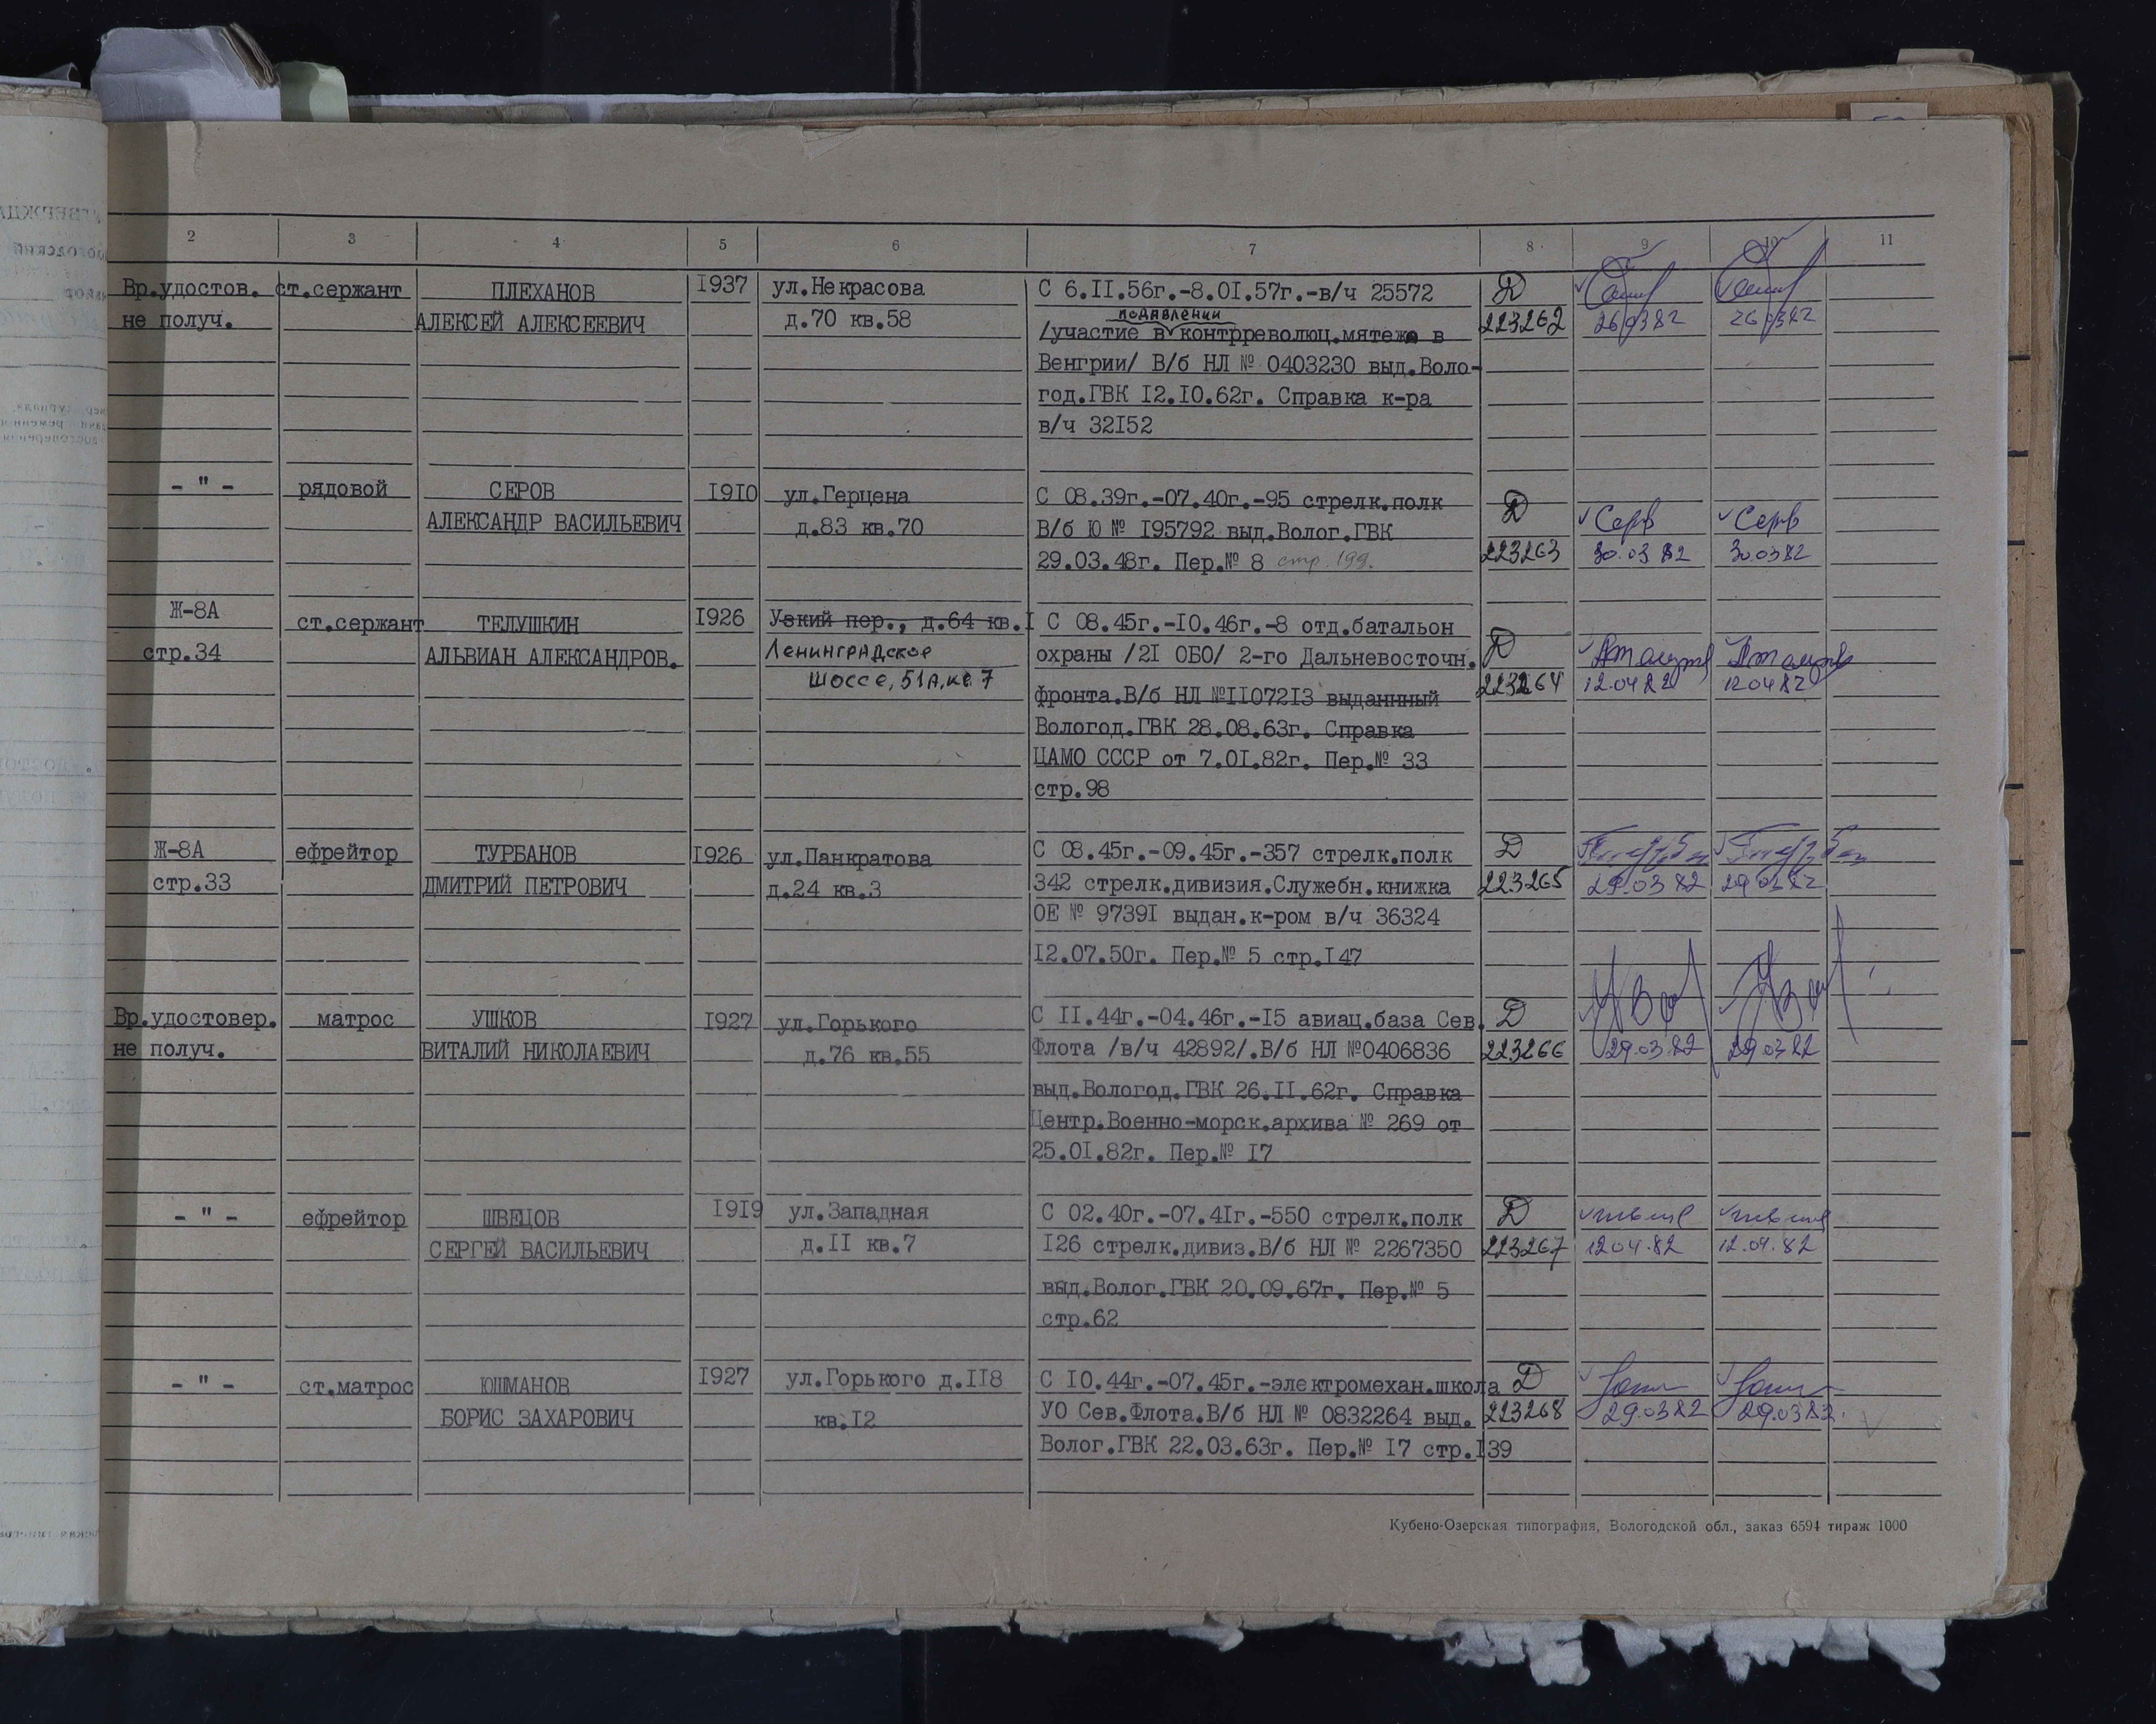 2 3 4 5 6 7 8 9 10 11
Вр.удостов. ст.сержант ПЛЕХАНОВ 1937 ул.Некрасова С 6.11.56г.-8.01.57г.-в/ч 25572 Д
подавлении
не получ. АЛЕКСЕЙ АЛЕКСЕЕВИЧ д.70 кв.58 /участие в контрреволюц.мятежа в 223262 260382 260382
Венгрии/ В/б НЛ № 0403230 выд.Воло-
год.ГВК 12.10.62г. Справка к-ра
в/ч 32152
- " - рядовой СЕРОВ 1910 ул.Герцена С 08.39г.-07.40г.-95 стрелк.полк Д
АЛЕКСАНДР ВАСИЛЬЕВИЧ д.83 кв.70 В/б Ю № 195792 выд.Волог.ГВК Серв Серв
29.03.48г. Пер.№ 8 стр.199. 223263 30.03 82 30.0382
Ж-8А ст.сержант ТЕЛУШКИН 1926 Узкий пер., д.64 кв.1 С 08.45г.-10.46г.-8 отд.батальон
стр.34 АЛЬВИАН АЛЕКСАНДРОВ. Ленинградское охраны /21 ОБО/ 2-го Дальневосточн. Д
шоссе, 51А, кв.7 фронта.В/б НЛ №1107213 выданнный 223264 12.04 82 120482
Вологод.ГВК 28.08.63г. Справка
ЦАМО СССР от 7.01.82г. Пер.№ 33
стр.98
Ж-8А ефрейтор ТУРБАНОВ 1926 ул.Панкратова С 08.45г.-09.45г.-357 стрелк.полк Д
стр.33 ДМИТРИЙ ПЕТРОВИЧ д.24 кв.3 342 стрелк.дивизия.Служебн.книжка 223265 29.03 82 29.03 82
ОЕ № 97391 выдан.к-ром в/ч 36324
12.07.50г. Пер.№ 5 стр.147
Вр.удостовер. матрос УШКОВ 1927 ул.Горького С 11.44г.-04.46г.-15 авиац.база Сев. Д
не получ. ВИТАЛИЙ НИКОЛАЕВИЧ д.76 кв.55 Флота /в/ч 42892/.В/б НЛ №0406836 223266 29.03.82 29.03 82
выд.Вологод.ГВК 26.11.62г. Справка
Центр.Военно-морск.архива № 269 от
25.01.82г. Пер.№ 17
- " - ефрейтор ШВЕЦОВ 1919 ул.Западная С 02.40г.-07.41г.-550 стрелк.полк Д
СЕРГЕЙ ВАСИЛЬЕВИЧ д.11 кв.7 126 стрелк.дивиз.В/б НЛ № 2267350 223267 1204.82 12.04.82
выд.Волог.ГВК 20.09.67г. Пер.№ 5
стр.62
- " - ст.матрос ЮШМАНОВ 1927 ул.Горького д.118 С 10.44г.-07.45г.-электромехан.школа Д
БОРИС ЗАХАРОВИЧ кв.12 УО Сев.Флота.В/б НЛ № 0832264 выд. 223268 29.0382 29.0382.
Волог.ГВК 22.03.63г. Пер.№ 17 стр.139
Кубено-Озерская типография, Вологодской обл., заказ 6594 тираж 1000